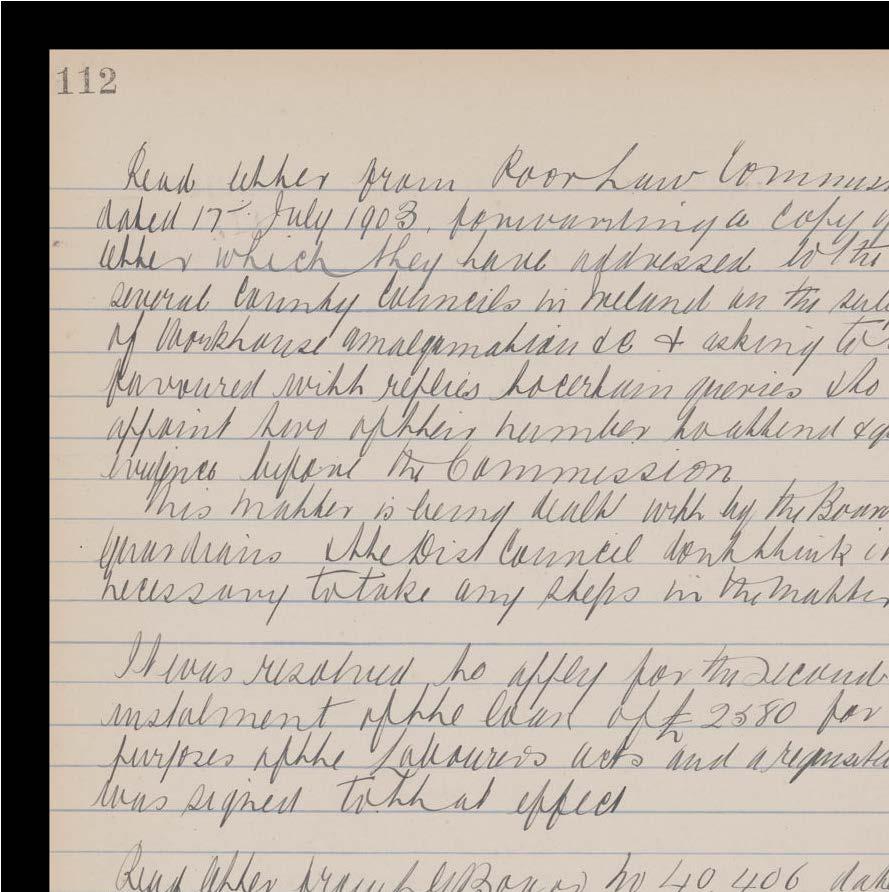 112
Read letter from Poor Law Commis
dated 17th July 1903, forwarding a copy o
letter which they have addressed to the
several County Councils in Ireland on the sub
of Workhouse amalgamation &c & asking to
favoured with replies to certain queries & to
appoint two of their number to attend & g
evidence before the Commission
This matter is being dealt with by the Boar
Guardians & the Dist Council dont think i
necessary to take any steps in the matter
It was resolved to apply for the second
instalment of the loan of £ 2580 for
purposes of the Labourers acts and a requisiti
was signed to that effect
Read letter from L G Board No 40 406 dat